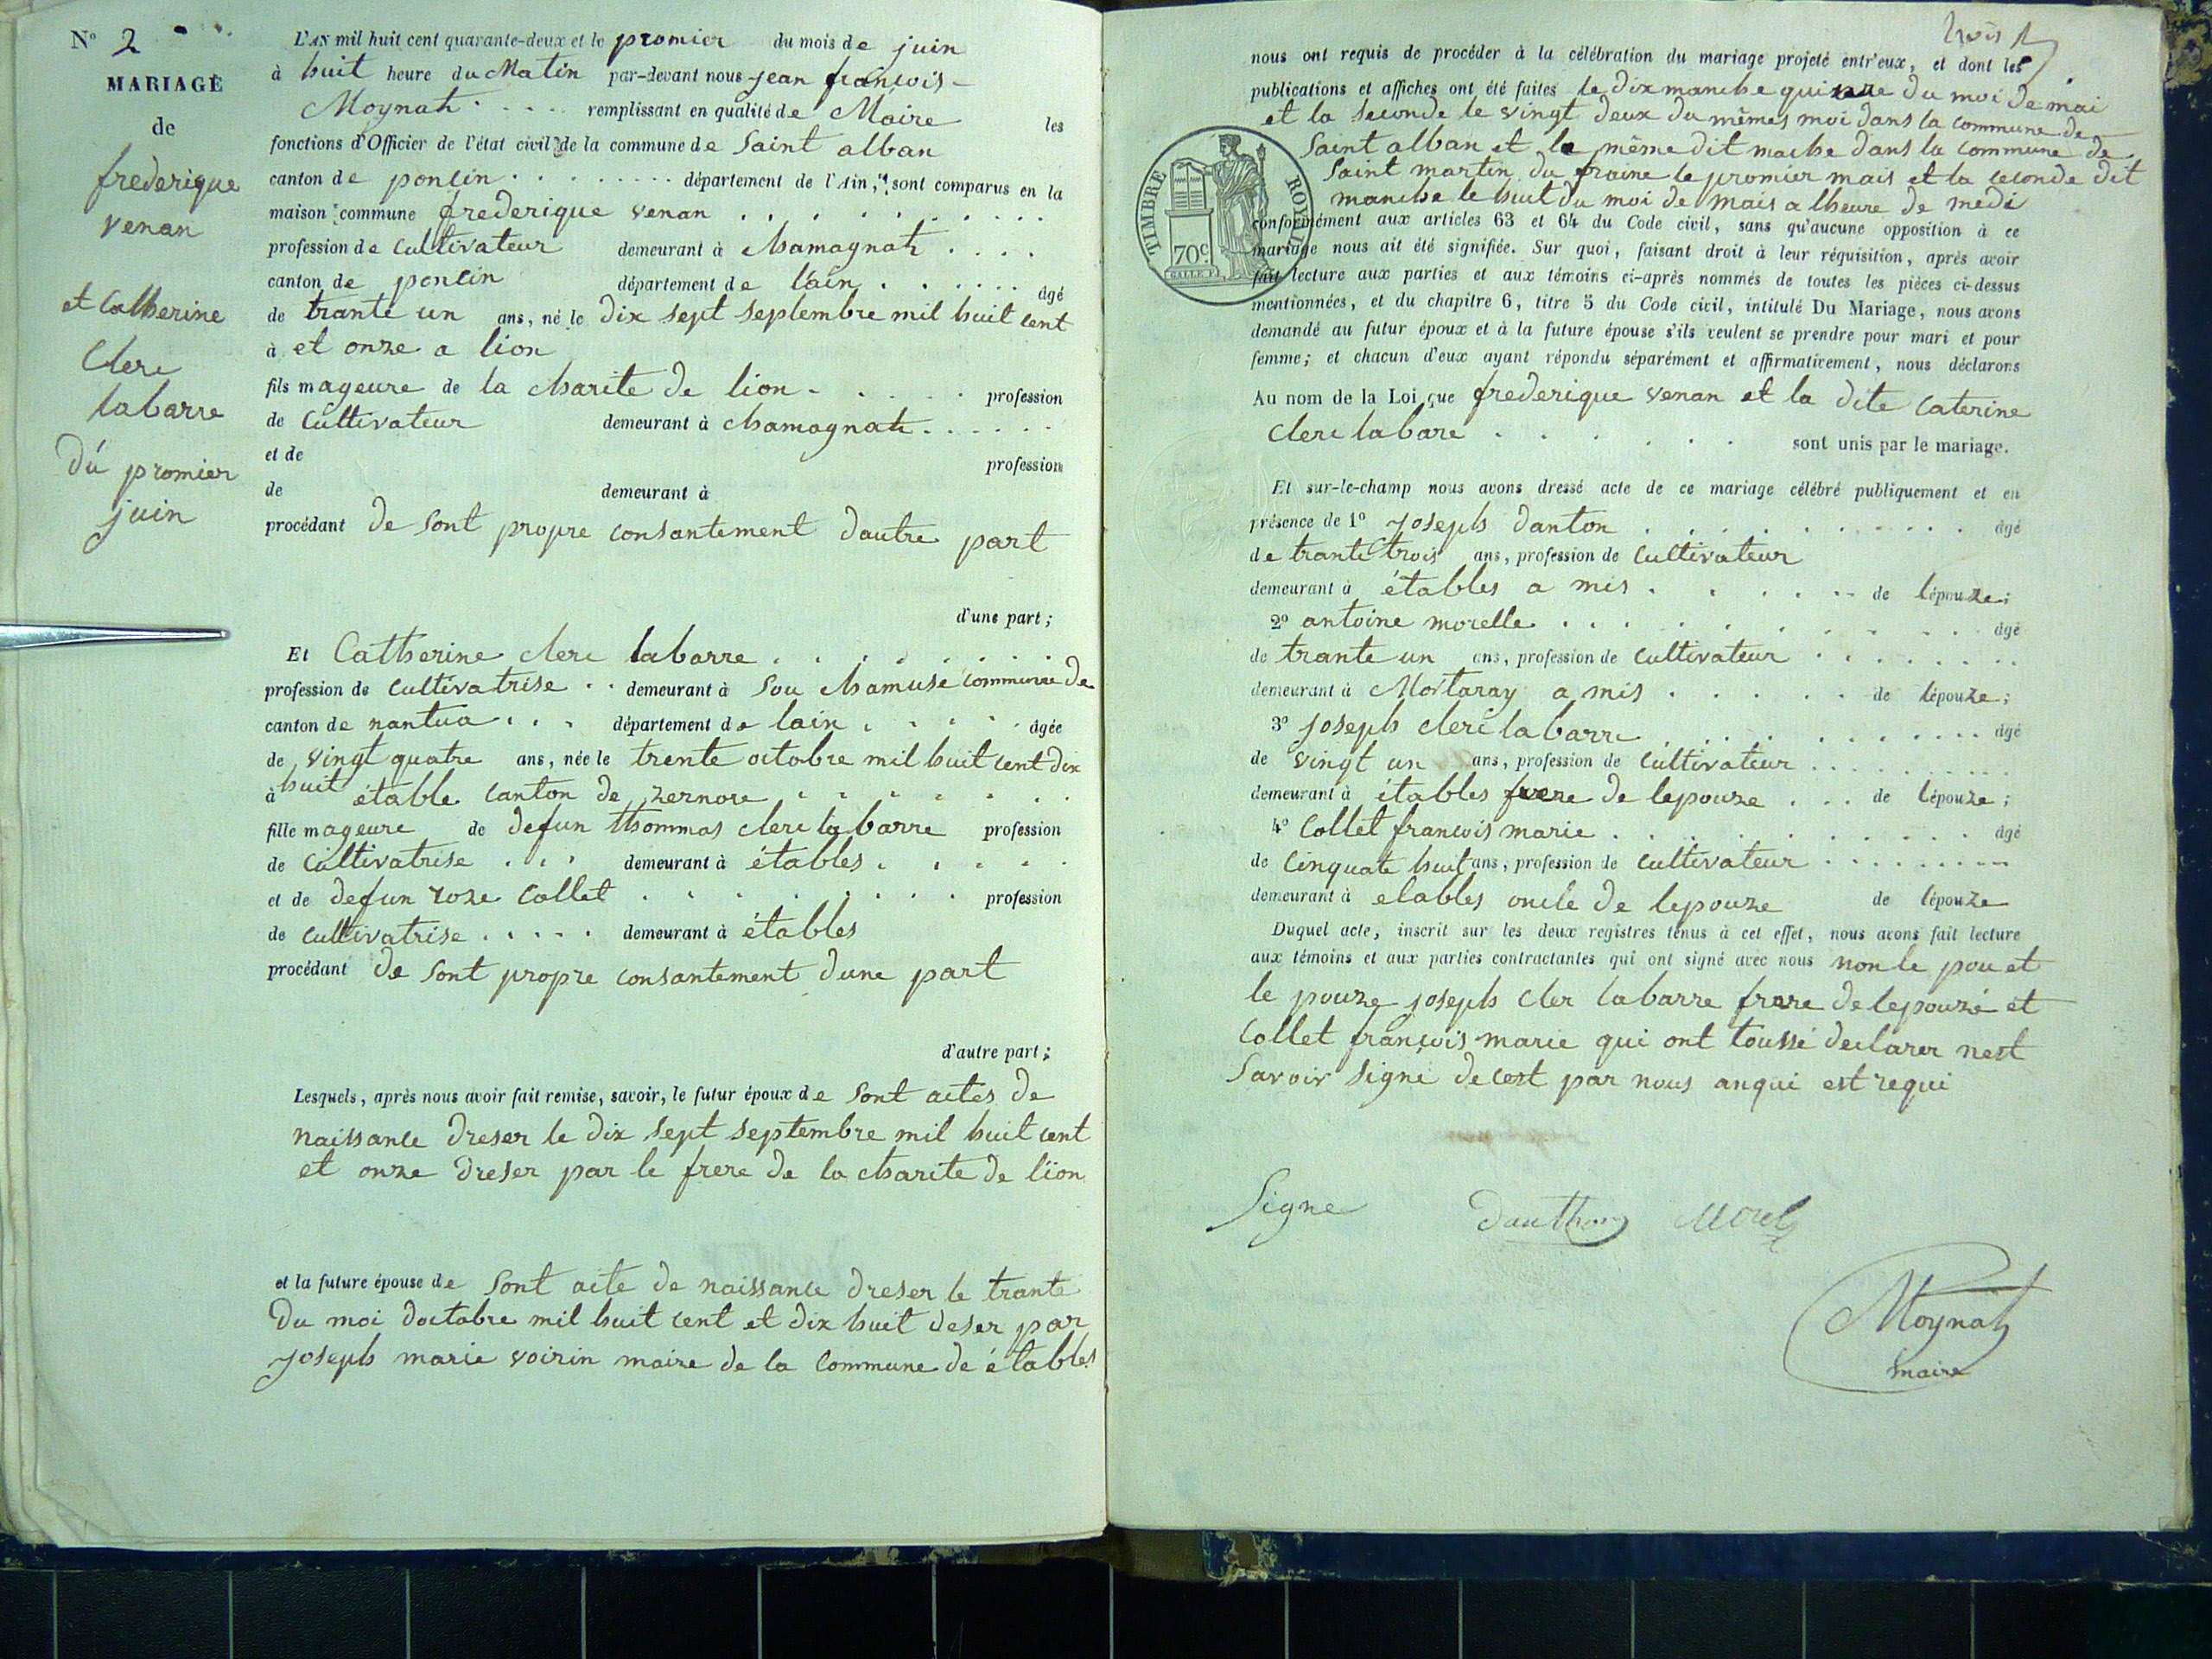 N° 2
MARIAGE
de
frederique
venan
et Catherine
Clerc
labarre
Du promier
juin
L'AN mil huit cent quarante-deux et le promier du mois de juin
à huit heure du Matin par-devant nous jean francois
Moynat remplissant en qualité de Maire les
fonctions d'Officier de l'état civil de la commune de Saint alban
canton de poncin département de l'Ain, sont comparus en la
maison commune frederique venan
profession de cultivateur demeurant à chamagnat
canton de poncin département de lain âgé
de trante un ans, né le dix sept septembre mil huit cent
à et onze a lion
fils mageure de la charite de lion profession
de cultivateur demeurant à chamagnat
et de profession
de demeurant à
procédant de sont propre consantement dautre part
d'une part ;
Et Catherine clerc labarre
profession de cultivatrise demeurant à Sou chamuse commune de
canton de nantua département de lain âgée
de vingt quatre ans, née le trente octobre mil huit cent dix
à huit étable canton de zernore
fille mageure de defun thommas clerc labarre profession
de cultivatrise demeurant à étables
et de defun roze Collet profession
de cultivatrise demeurant à étables
procédant de sont propre consantement dune part
d'autre part ;
Lesquels, après nous avoir fait remise, savoir, le futur époux de sont actes de
naissance dreser le dix sept septembre mil huit cent
et onze dreser par le frere de la charite de lion
et la future épouse de sont acte de naissance dreser le trante
Du moi doctobre mil huit cent et dix huit deser par
joseph marie voirin maire de la commune de étables
trois
nous ont requis de procéder à la célébration du mariage projeté entr'eux, et dont les
publications et affiches ont été faites le dix manche quinze du moi de mai
et la seconde le vingt deux du mêmes moi dans la commune de
Saint alban et le même dit mache dans la commune de
Saint martin du fraine le promier mais et la ceconde dit
manche le huit du moi de mais a lheure de medi
TIMBRE ROYAL
70c
conformément aux articles 63 et 64 du Code civil, sans qu'aucune opposition à ce
mariage nous ait été signifiée. Sur quoi, faisant droit à leur réquisition, après avoir
fait lecture aux parties et aux témoins ci-après nommés de toutes les pièces ci-dessus
mentionnées, et du chapitre 6, titre 5 du Code civil, intitulé Du Mariage, nous avons
demandé au futur époux et à la future épouse s'ils veulent se prendre pour mari et pour
femme ; et chacun d'eux ayant répondu séparément et affirmativement, nous déclarons
Au nom de la Loi que frederique venan et la dite Caterine
Clerc labare sont unis par le mariage.
Et sur-le-champ nous avons dressé acte de ce mariage célébré publiquement et en
présence de 1° joseph danton âgé
de trante trois ans, profession de cultivateur
demeurant à étables a mis de lépouze ;
2° antoine morelle âgé
de trante un ans, profession de cultivateur
demeurant à Mortaray a mis de lépouze ;
3° joseph clerc labarre âgé
de vingt un ans, profession de cultivateur
demeurant à étables frere de lepouze de lépouze ;
4° Collet francois marie âgé
de Cinquate huit ans, profession de cultivateur
demeurant à elables oncle de lepouze de lépouze
Duquel acte, inscrit sur les deux registres tenus à cet effet, nous avons fait lecture
aux témoins et aux parties contractantes qui ont signé avec nous non le pou et
le pouze joseph cler labarre frere de lepouzé et
Collet francois marie qui ont toussé declarer nest
Savoir signé de cest par nous anqui est requi
Signe Dauthon Morel
Moynat
maire